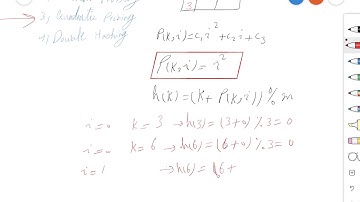 3) Quadratic Probing
4) Double Hashing
3
P(K,i)=c₁i²+c₂i+c₃
P(K,i)=i²
h(K)=(K+P(K,i))%m
i=0 K=3 →h(3)=(3+0)%3=0
i=0 K=6 →h(6)=(6+0)%3=0
i=1 →h(6)=(6+